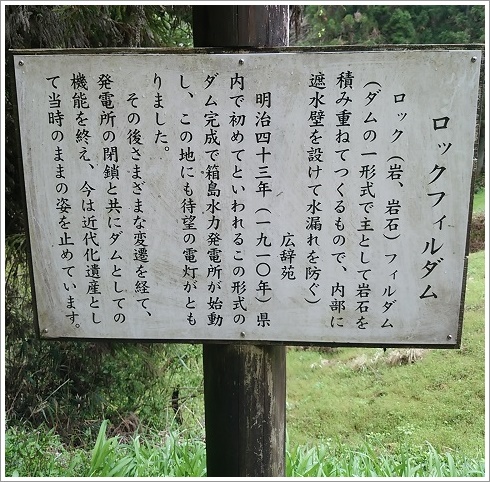 ロックフィルダム
ロック（岩、岩石）フィルダム
（ダムの一形式で主として岩石を
積み重ねてつくるもので、内部に
遮水壁を設けて水漏れを防ぐ）
広辞苑
明治四十三年（一九一〇年）県
内で初めてといわれるこの形式の
ダム完成で箱島水力発電所が始動
し、この地にも待望の電灯がとも
りました。
その後さまざまな変遷を経て、
発電所の閉鎖と共にダムとしての
機能を終え、今は近代化遺産とし
て当時のままの姿を止めています。